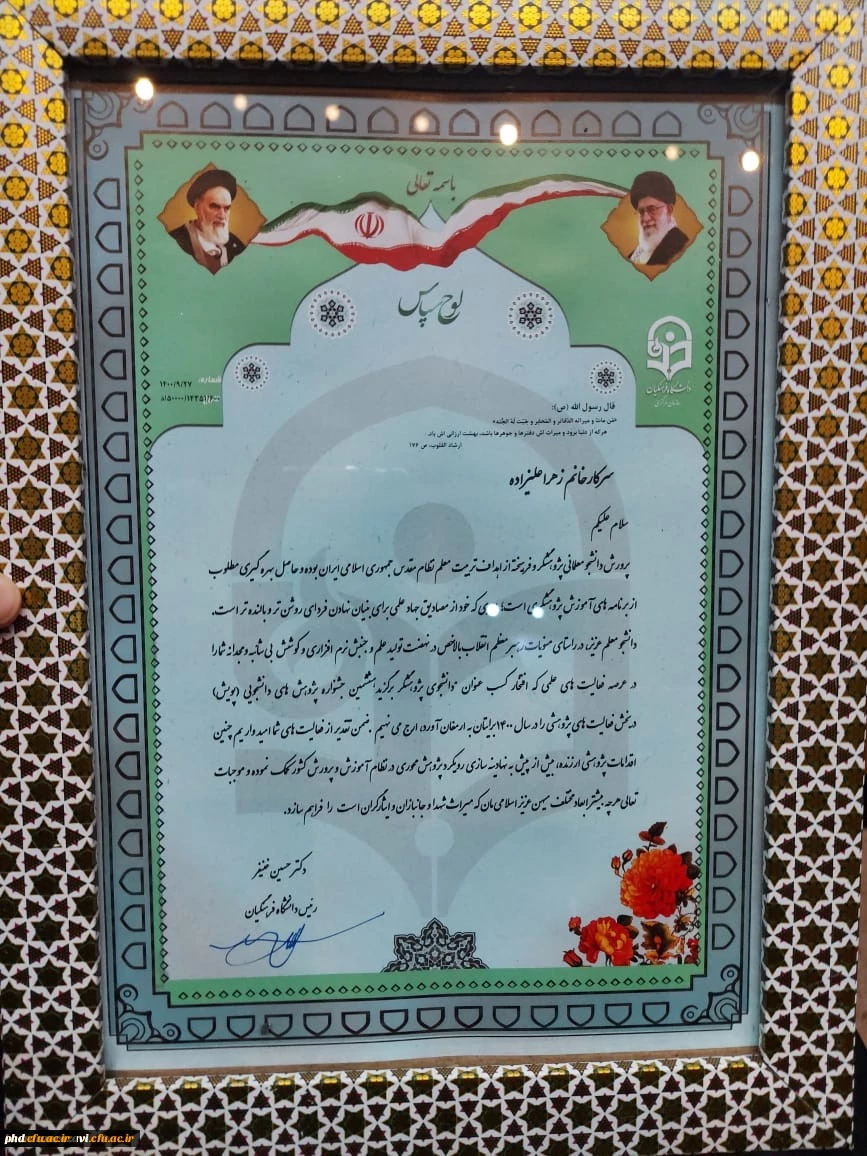 باسمه تعالی
لوح سپاس
دانشگاه فرهنگیان
سازمان مرکزی
شماره: ۱۴۰۰/۹/۲۷
قال رسول الله (ص):
هرکه از دنیا برود و میراث اش دفترها و جوهرها باشد، بهشت ارزانی اش باد.
ارشاد القلوب، ص ۱۷۶
سرکار خانم زهرا علیزاده
سلام علیکم
پرورش دانشجو معلمانی پژوهشگر و فرهیخته از اهداف تربیت معلم نظام مقدس جمهوری اسلامی ایران بوده و حاصل بهره گیری مطلوب
از برنامه های آموزش پژوهشگری است که خود از مصادیق جهاد علمی برای بنیان نهادن فردای روشن تر و بالنده تر است.
دانشجو معلم عزیز، در راستای منویات رهبر معظم انقلاب بالاخص در نهضت تولید علم و جنبش نرم افزاری و کوشش بی شائبه و مجدانه شما را
در عرصه فعالیت های علمی که افتخار کسب عنوان "دانشجوی پژوهشگر برگزیده هشتمین جشنواره پژوهش های دانشجویی (پویش)
در بخش فعالیت های پژوهشی را در سال ۱۴۰۰ برایتان به ارمغان آورد، ارج می نهیم. ضمن تقدیر از فعالیت های شما امیدواریم چنین
اقدامات پژوهشی ارزنده، بیش از پیش به نهادینه سازی رویکرد پژوهش محوری در نظام آموزش و پرورش کشور کمک نموده و موجبات
تعالی هرچه بیشتر ابعاد مختلف میهن عزیز اسلامی مان که میراث شهدا و جانبازان و ایثارگران است را فراهم سازد.
دکتر حسین خنیفر
رئیس دانشگاه فرهنگیان